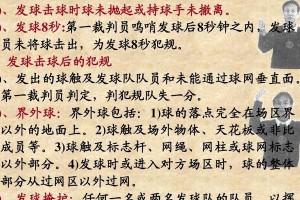 、发球击球时球未抛起或持球手未撤离。
、发球8秒:第一裁判员鸣哨发球后8秒钟之内，发球
员未将球击出，为发球8秒犯规。
发球击球后的犯规
、发出的球触及发球队队员和未能通过球网垂直面
第一裁判员判定，判犯规队失一分。
、界外球：界外球包括：1)球的落点完全在场区界
以外的地面上。2)球触及场外物体、天花板或非比
成员等。3)球触及标志杆、网绳、网柱或球网标志
以外部分。4)发球时或进入对方场区时，球的整体
部分从过网区以外过网。
、发球掩护：任何一名或两名发球队的队员，以挥